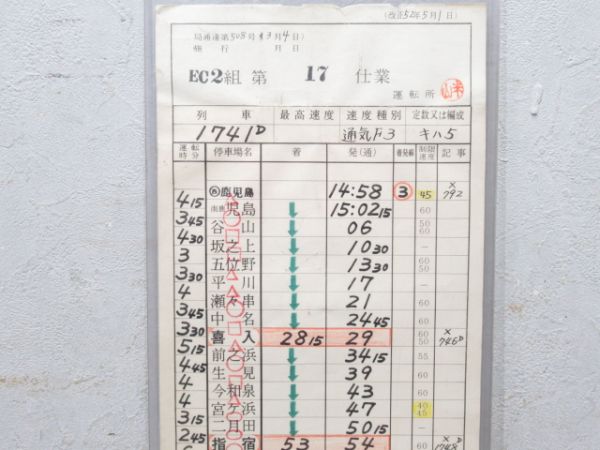 (改正52年5月1日)
局達第508号 3月4日)
施行 月 日
EC2組 第 17 仕業
運転所
列車 最高速度 速度種別 定数又は編成
1741D 通気F3 キハ5
運転時分 停車場名 着 発(通) 着発線 制限速度 記事
鹿児島 14:58 3 45 ×792
415 南鹿児島 ↓ 15:0215 60
345 谷山 ↓ 06 50 60
430 坂之上 ↓ 1030 -
3 五位野 ↓ 1330 60 50
330 平川 ↓ 17 -
4 瀬々串 ↓ 21 60
345 中名 ↓ 2445 60
330 喜入 2815 29 60 50 ×746D
515 前之浜 ↓ 3415 55
445 生見 ↓ 39 60
4 今和泉 ↓ 43 60
4 宮ケ浜 ↓ 47 40 45
315 二月田 ↓ 5015 -
245 指宿 53 54 60 ×1748D